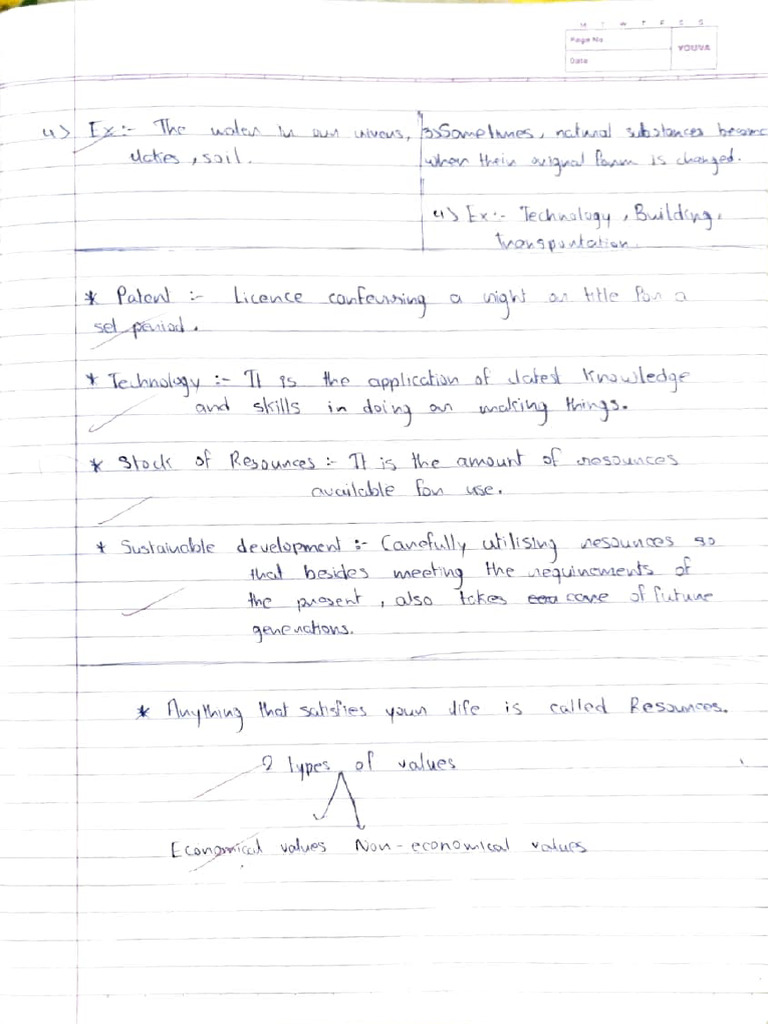 M T W T F S S
Page No
YOUVA
Date
4) Ex:- The water in our rivers,
lakes, soil.
3) Sometimes, natural substances become
when their original form is changed.
4) Ex:- Technology, Building,
transportation.
* Patent :- Licence conferring a right or title for a
set period.
* Technology :- It is the application of latest knowledge
and skills in doing or making things.
* Stock of Resources :- It is the amount of resources
available for use.
* Sustainable development :- Carefully utilising resources so
that besides meeting the requirements of
the present, also takes care of future
generations.
* Anything that satisfies your life is called Resources.
2 types of values
Economical values Non-economical values